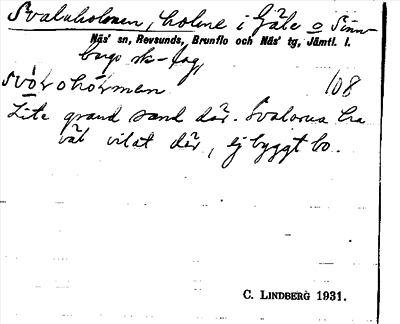 Svaluholmen, holme i Gäle o Sinn-
Näs' sn, Revsunds, Brunflo och Näs' tg, Jämtl. l.
bergs sk-lag,
108
Lite grand sand där. Svalorna ha
väl vilat där, ej byggt bo.
C. LINDBERG 1931.